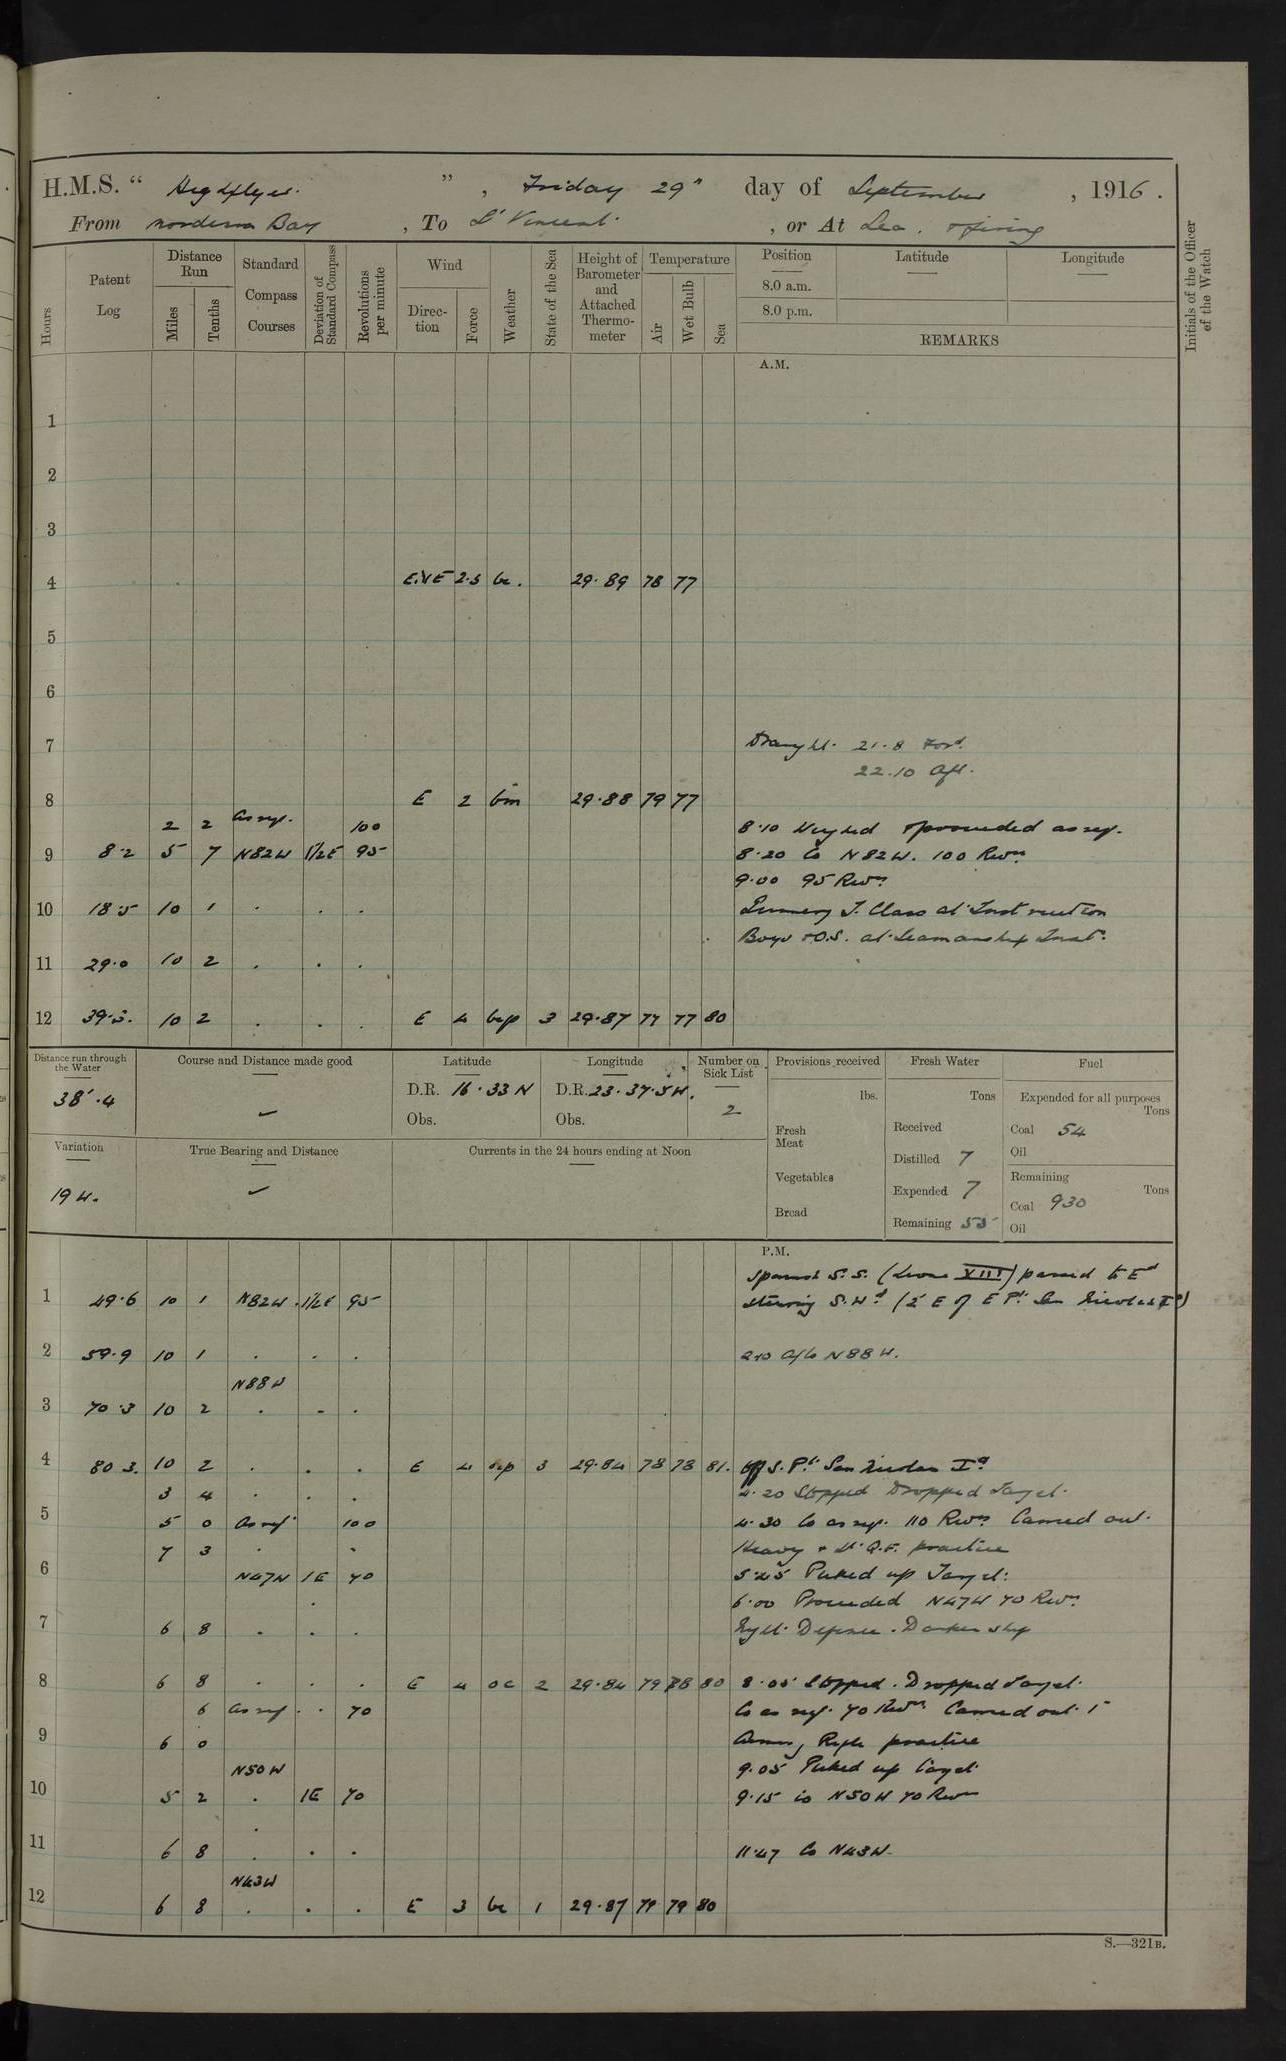 H.M.S. " Highflyer. " , Friday 29" day of September , 1916.
From Mordeira Bay , To St Vincent , or At Sea. & firing
Hours
Patent Log
Distance Run
Miles
Tenths
Standard Compass Courses
Deviation of Standard Compass
Revolutions per minute
Wind
Direction
Force
Weather
State of the Sea
Height of Barometer and Attached Thermometer
Temperature
Air
Wet Bulb
Sea
Position
Latitude
Longitude
8.0 a.m.
8.0 p.m.
REMARKS
Initials of the Officer of the Watch
A.M.
1
2
3
4 ENE 2.3 bc. 29.89 78 77
5
6
7 Draught. 21.8 Ford.
22.10 Aft.
8 E 2 bm 29.88 79 77
2 2 As req. 100 8.10 Weighed & proceeded as req.
9 8.2 5 7 N82W 1/2E 95 8.20 Co N82W. 100 Revns
9.00 95 Revns
10 18.5 10 1 . . . Gunnery T. Class at Instruction
Boys & O.S. at Seamanship Inst.
11 29.0 10 2 . . .
12 39.3. 10 2 . . . E 4 bcp 3 29.87 77 77 80
Distance run through the Water
38'.4
Course and Distance made good
Latitude
D.R. 16.33 N
Obs.
Longitude
D.R. 23.37.5 W.
Obs.
Number on Sick List
2
Provisions received
lbs.
Fresh Meat
Vegetables
Bread
Fresh Water
Tons
Received
Distilled 7
Expended 7
Remaining 55
Fuel
Expended for all purposes
Tons
Coal 54
Oil
Remaining
Tons
Coal 930
Oil
Variation
19 W.
True Bearing and Distance
Currents in the 24 hours ending at Noon
P.M.
Spanish S.S. (Leone XIII) passed to Ed
1 49.6 10 1 N82W . 1/2E 95 steering S.Wd (2' E of E Pt. San Nicolas Id)
2 59.9 10 1 . . . 2.10 A/Co N88W.
N88W
3 70.3 10 2 . . .
4 80 3. 10 2 . . . E 4 3 29.84 78 78 81. Off S. Pt. San Nicolas Id
3 4 . . . 4.20 Stopped Dropped Target.
5 5 0 As req. 100 4.30 Co as req. 110 Revns Carried out
7 3 . . Heavy & Lt Q.F. practice
6 N47W 1E 70 5.45 Picked up Target.
6.00 Proceeded N47W 70 Revns
7 6 8 . . . Night Defence. Darken ship
8 6 8 . . . E 4 oc 2 29.84 79 78 80 8.05 Stopped. Dropped Target.
6 As req. . . 70 Co as req. 70 Revns Carried out 1"
9 6 0 Aiming Rifle practice
N50W 9.05 Picked up Target
10 5 2 . 1E 70 9.15 Co N50W 70 Revns
11 6 8 . . . 11.47 Co N43W.
N43W
12 6 8 . . . E 3 bc 1 29.87 79 79 80
S.—321B.